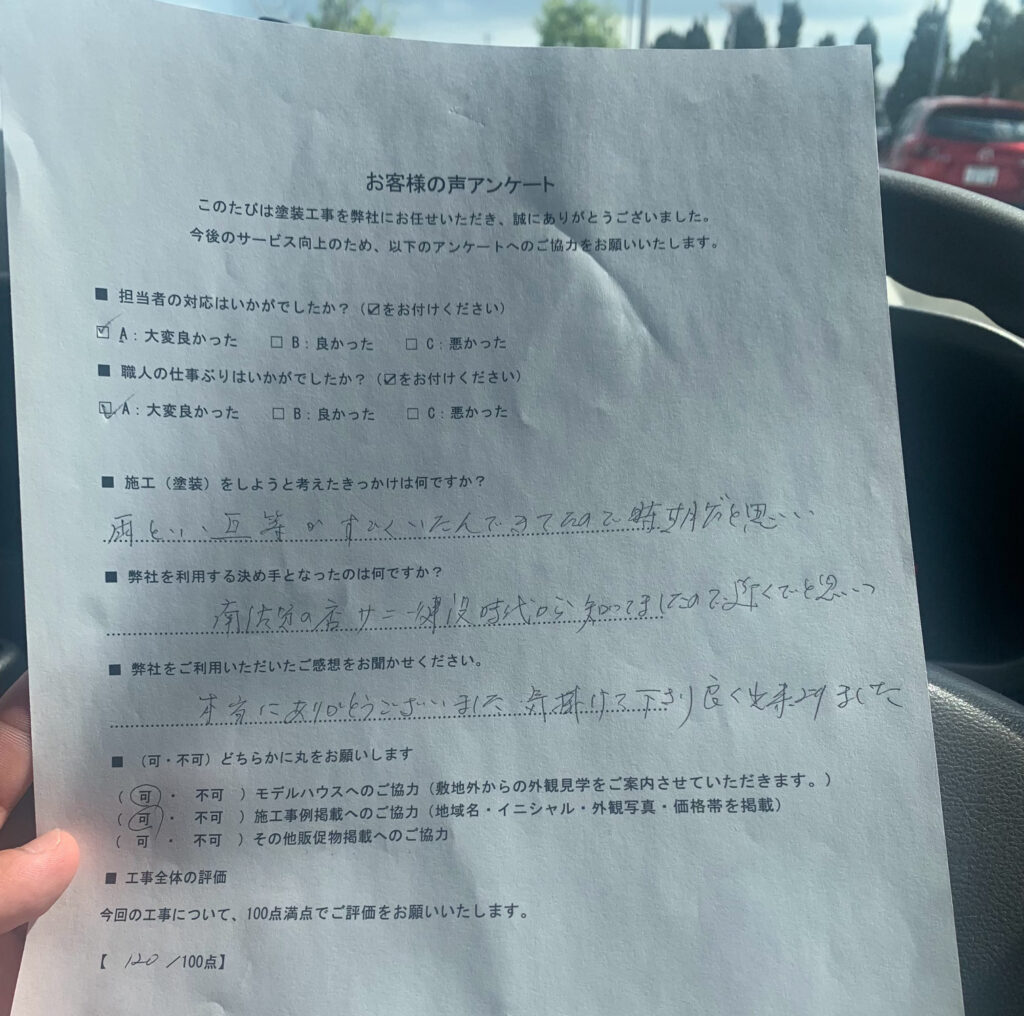 お客様の声アンケート
このたびは塗装工事を弊社にお任せいただき、誠にありがとうございました。
今後のサービス向上のため、以下のアンケートへのご協力をお願いいたします。
■ 担当者の対応はいかがでしたか？（☑をお付けください）
☑ A：大変良かった □ B：良かった □ C：悪かった
■ 職人の仕事ぶりはいかがでしたか？（☑をお付けください）
☑ A：大変良かった □ B：良かった □ C：悪かった
■ 施工（塗装）をしようと考えたきっかけは何ですか？
雨とい、瓦等がすごくいたんできてたので時期だと思い
■ 弊社を利用する決め手となったのは何ですか？
の店サニー建設時代から知ってましたので近くでと思いつ
■ 弊社をご利用いただいたご感想をお聞かせください。
本当にありがとうございました 気掛けて下さり良く出来ました
■ （可・不可）どちらかに丸をお願いします
（ 可 ・ 不可 ）モデルハウスへのご協力（敷地外からの外観見学をご案内させていただきます。）
（ 可 ・ 不可 ）施工事例掲載へのご協力（地域名・イニシャル・外観写真・価格帯を掲載）
（ 可 ・ 不可 ）その他販促物掲載へのご協力
■ 工事全体の評価
今回の工事について、100点満点でご評価をお願いいたします。
【 120 /100点】